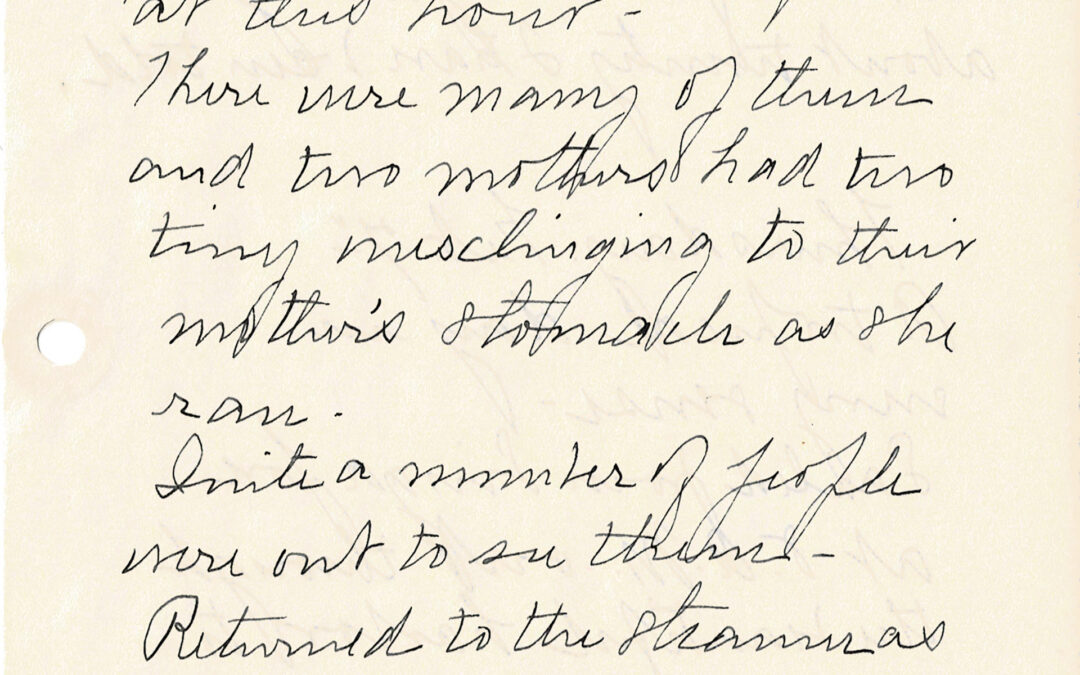 at this hour -
There were many of them
and two mothers had two
tiny ones clinging to their
mother's stomach as she
ran.
Quite a number of people
were out to see them -
Returned to the steamer as